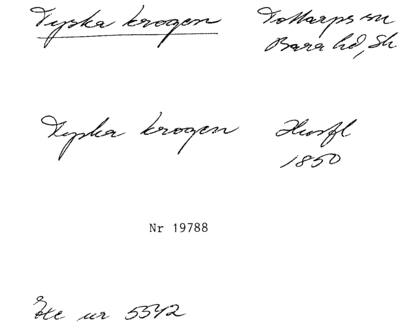 Tyska krogen Tottarps sn
Bara hd, Sk
Tyska krogen Husfl
1850
Nr 19788
ur 5542